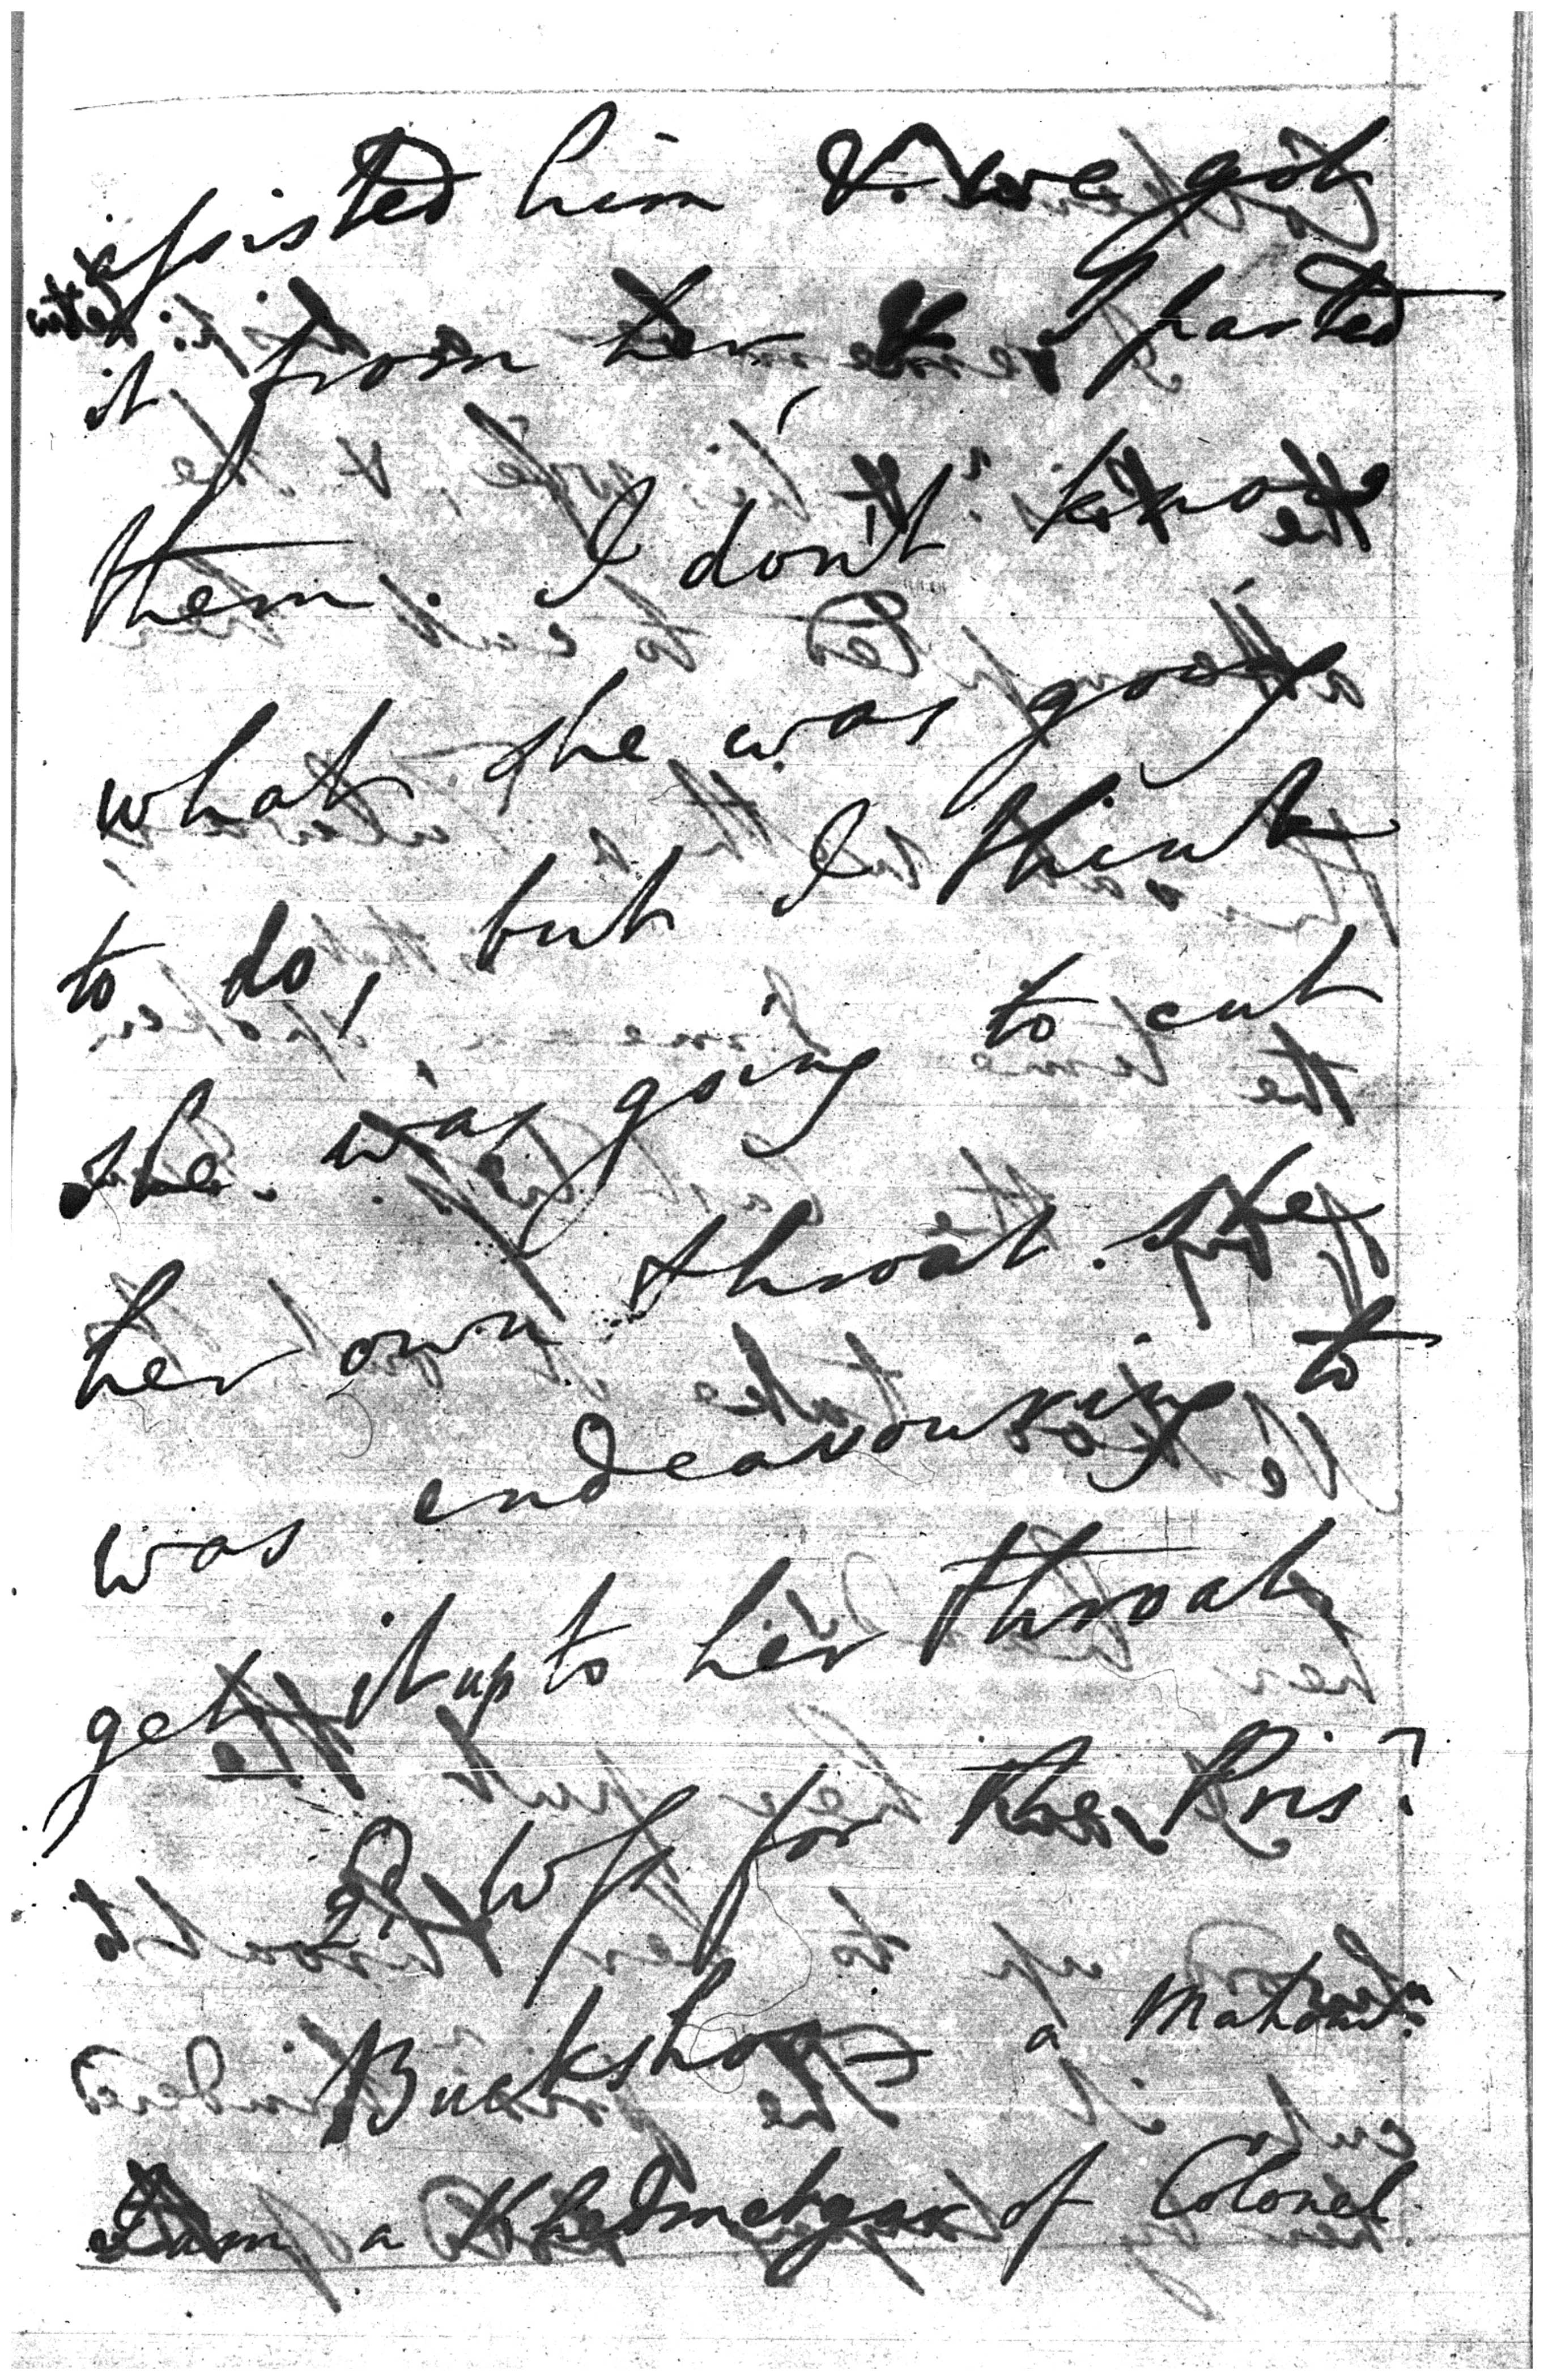 assisted him & we got
it from her, & I parted
them. I don't know
what she was going
to do, but I think
she was going to cut
her own throat. She
was endeavouring to
get it up to her throat
2d Wss for the Pris?
Buckshoo a Mahom:n
I am a Khedmetgar of Colonel